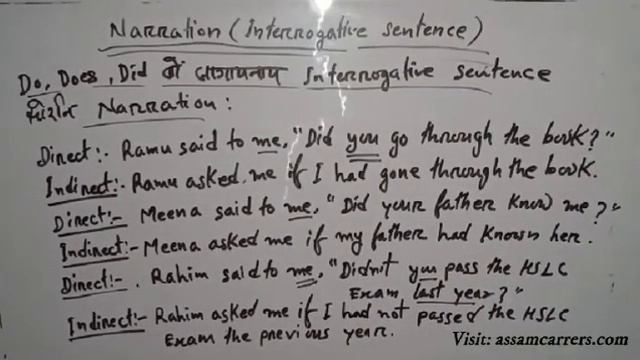 Narration (Interrogative sentence)
Do, Does, Did Interrogative sentence
Narration :
Direct :- Ramu said to me, "Did you go through the book?"
Indirect :- Ramu asked me if I had gone through the book.
Direct :- Meena said to me, "Did your father know me?"
Indirect :- Meena asked me if my father had known her.
Direct :- Rahim said to me, "Didn't you pass the HSLC
Exam last year?"
Indirect :- Rahim asked me if I had not passed the HSLC
Exam the previous year.
Visit: assamcarrers.com